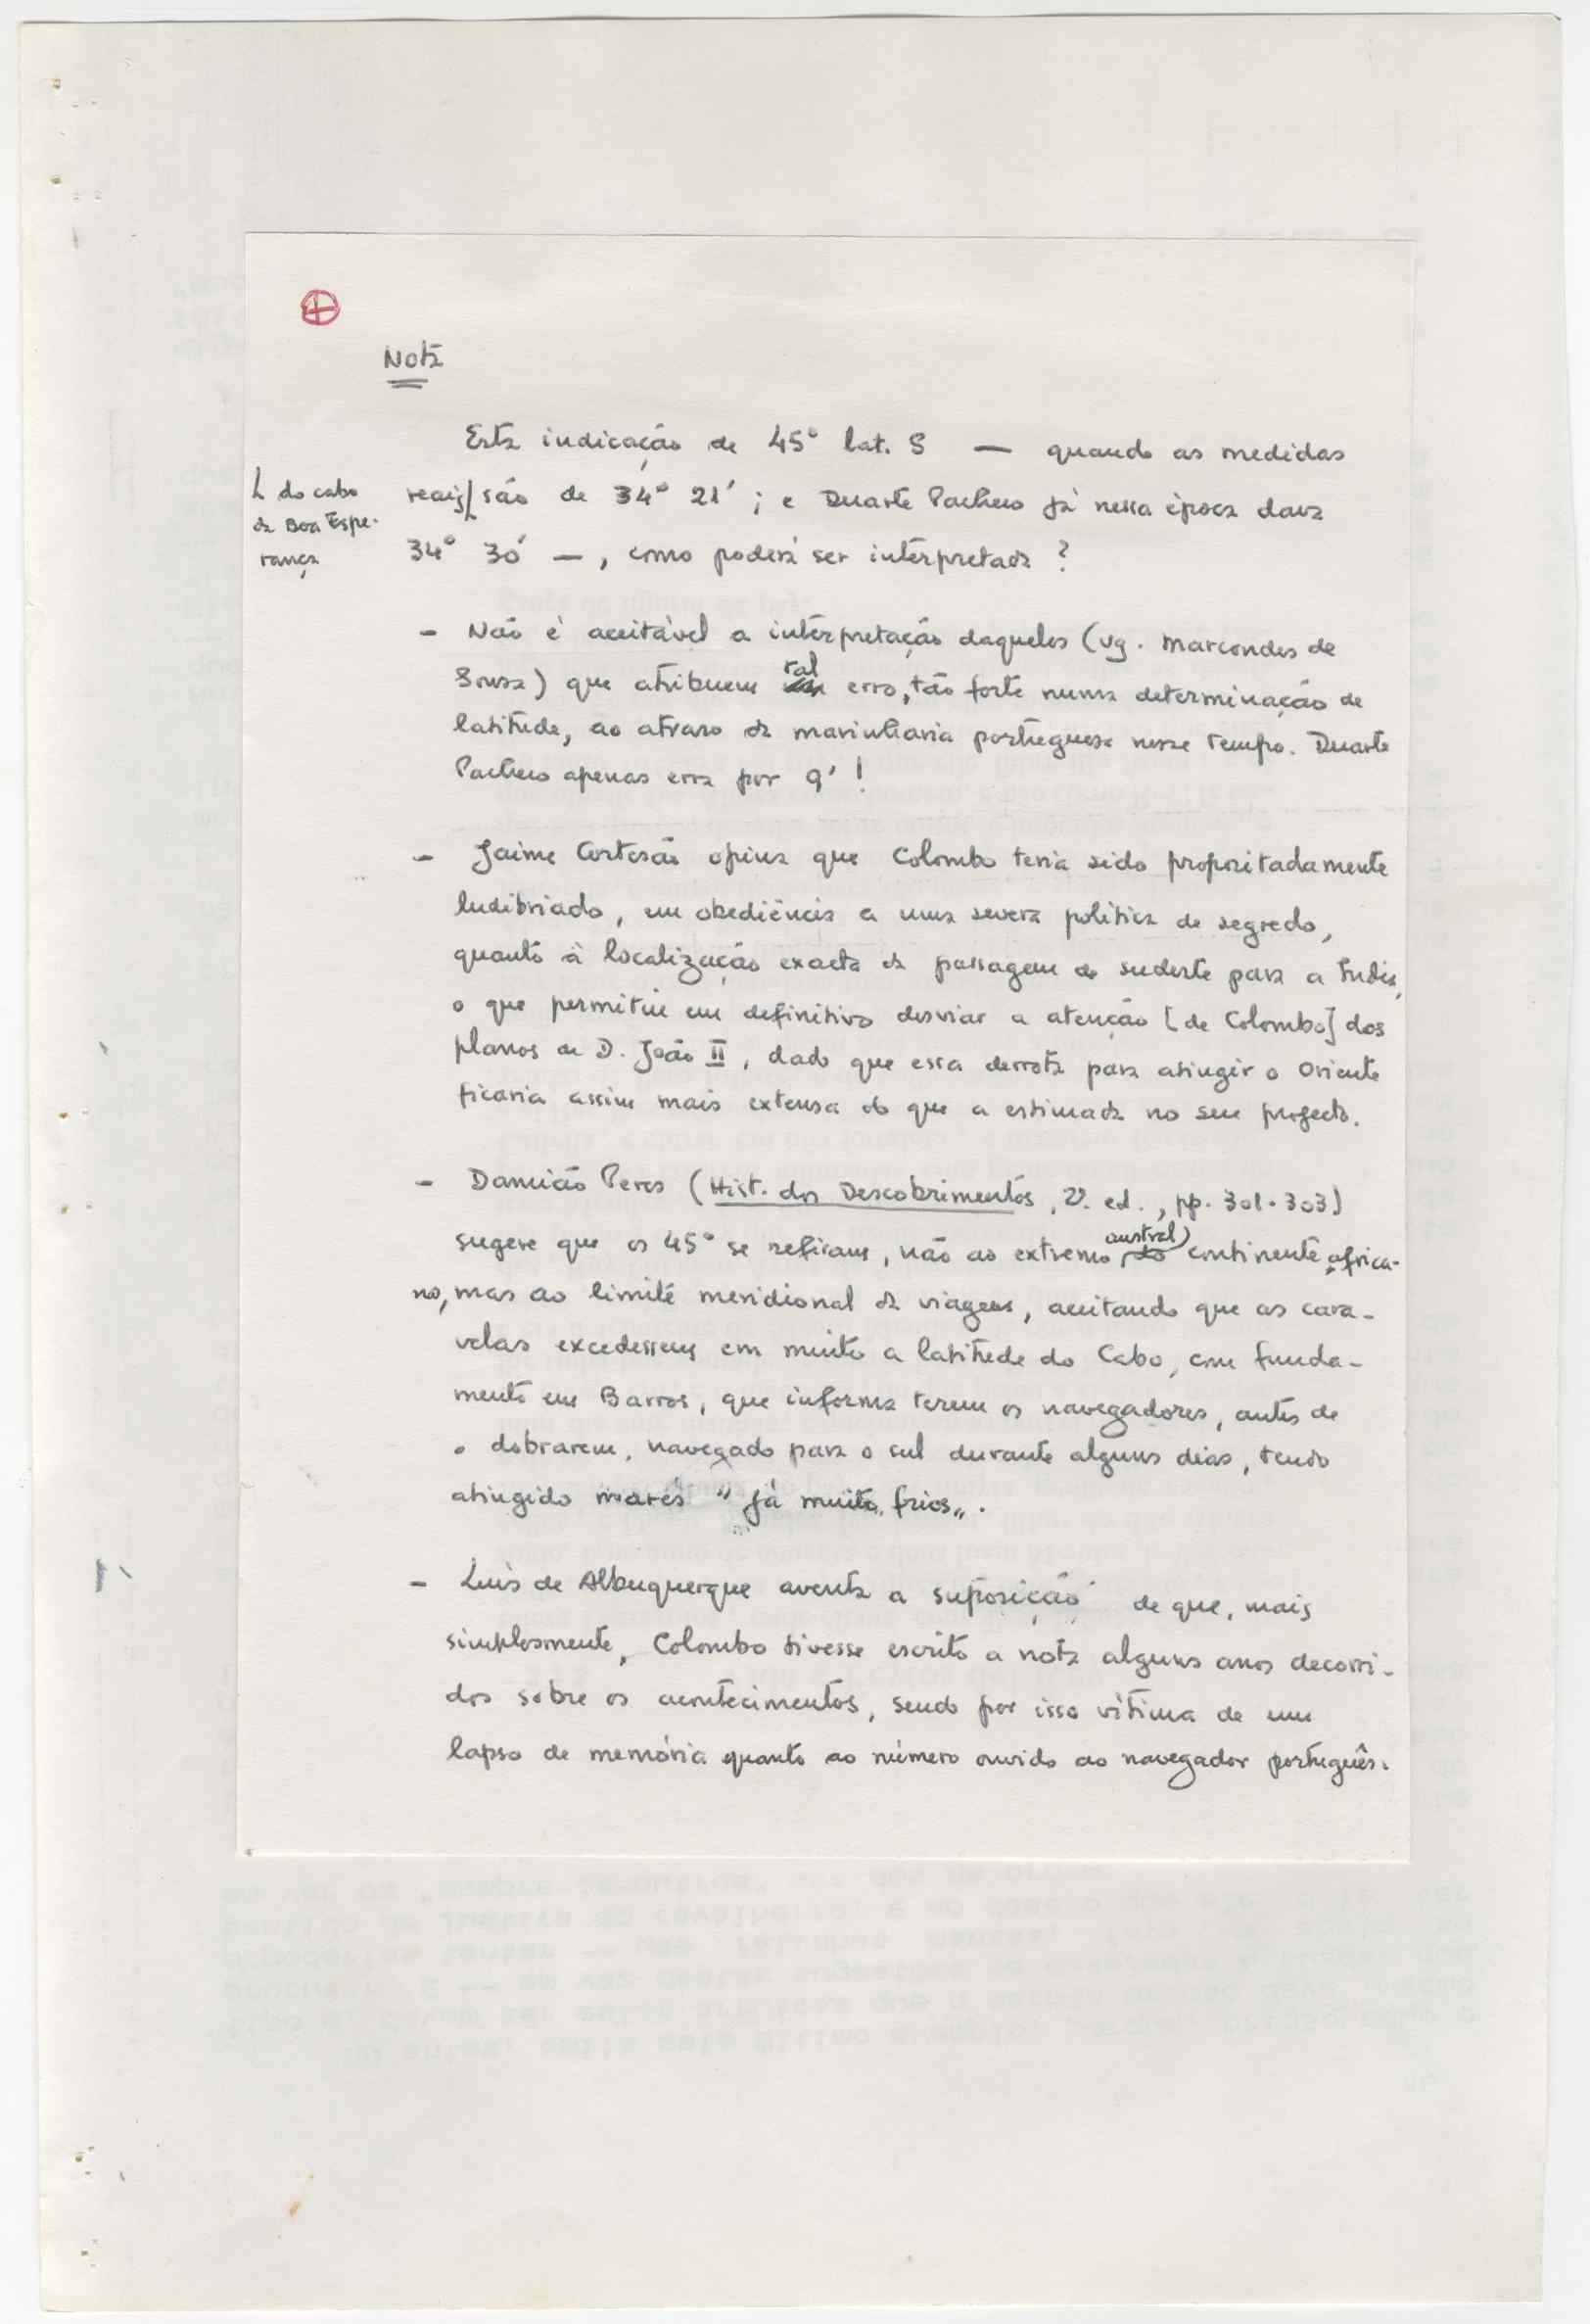 Nota
Esta indicação de 45° lat. S — quando as medidas
L do cabo
da Boa Espe-
rança
reais L são de 34° 21' ; e Duarte Pacheco já nessa época dava
34° 30' —, como poderá ser interpretada ?
- Não é aceitável a interpretação daqueles (vg. Marcondes de
Sousa) que atribuem tal erro, tão forte numa determinação de
latitude, ao atraso da marinharia portuguesa nesse tempo. Duarte
Pacheco apenas erra por 9' !
- Jaime Cortesão opina que Colombo teria sido propositadamente
ludibriado, em obediência a uma severa política de segredo,
quanto à localização exacta da passagem de sudeste para a Índia,
o que permitiu em definitivo desviar a atenção [de Colombo] dos
planos de D. João II, dado que essa derrota para atingir o Oriente
ficaria assim mais extensa do que a estimada no seu projecto.
- Damião Peres (Hist. dos Descobrimentos, 2ª. ed., pp. 301-303)
sugere que os 45° se refiram, não ao extremo austral do continente africa-
no, mas ao limite meridional da viagem, aceitando que as cara-
velas excedessem em muito a latitude do Cabo, com funda-
mento em Barros, que informa terem os navegadores, antes de
o dobrarem, navegado para o sul durante alguns dias, tendo
atingido mares "já muito frios".
- Luís de Albuquerque aventa a suposição de que, mais
simplesmente, Colombo tivesse escrito a nota alguns anos decorri-
dos sobre os acontecimentos, sendo por isso vítima de um
lapso de memória quanto ao número ouvido ao navegador português.